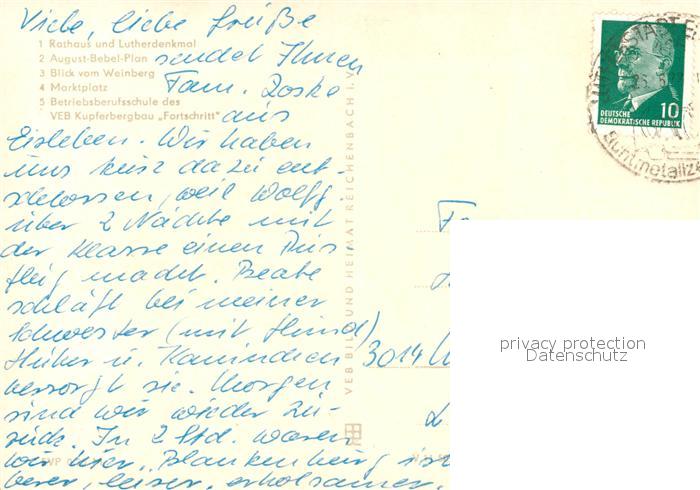 Viele, liebe Grüße
1 Rathaus und Lutherdenkmal
2 August-Bebel-Plan
sendet Ihnen
3 Blick vom Weinberg
4 Marktplatz
Fam. Roske
5 Betriebsberufsschule des
VEB Kupferbergbau „Fortschritt"
aus
Eisleben. Wir haben
uns kurz dazu ent-
schlossen, weil Wolfg.
über 2 Nächte mit
der Klasse einen Aus-
flug macht. Beate
schläft bei meiner
Schwester (mit Hund)
Hühner u. Kaninchen
versorgt sie. Morgen
sind wir wieder zu-
rück. In 2 Std. waren
wir hier. Blankenburg ist
leiser, erholsamer.
VEB BILD UND HEIMAT REICHENBACH I. V.
DEUTSCHE
DEMOKRATISCHE REPUBLIK
10
Buntmetallze
Fa
3014
privacy protection
Datenschutz